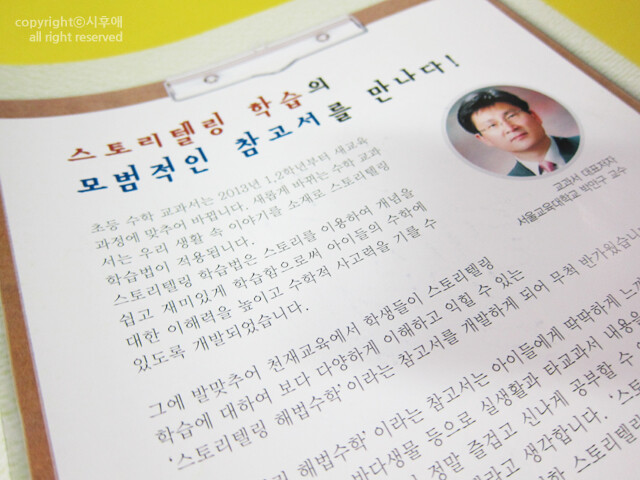 copyrightⓒ시후애
all right reserved
스토리텔링 학습의
모범적인 참고서를 만나다!
초등 수학 교과서는 2013년 1,2학년부터 새교육
과정에 맞추어 바뀝니다. 새롭게 바뀌는 수학 교과
서는 우리 생활 속 이야기를 소재로 스토리텔링
학습법이 적용됩니다.
스토리텔링 학습법은 스토리를 이용하여 개념을
쉽고 재미있게 학습함으로써 아이들의 수학에
대한 이해력을 높이고 수학적 사고력을 기를 수
있도록 개발되었습니다.
교과서 대표저자
서울교육대학교 박만구 교수
그에 발맞추어 천재교육에서 학생들이 스토리텔링
학습에 대하여 보다 다양하게 이해하고 익힐 수 있는
'스토리텔링 해법수학'이라는 참고서를 개발하게 되어 무척 반가웠습니다
해법수학'이라는 참고서는 아이들에게 딱딱하게 느껴
바다생물 등으로 실생활과 타교과서 내용을
정말 즐겁고 신나게 공부할 수
라고 생각합니다. '스토
스토리텔리